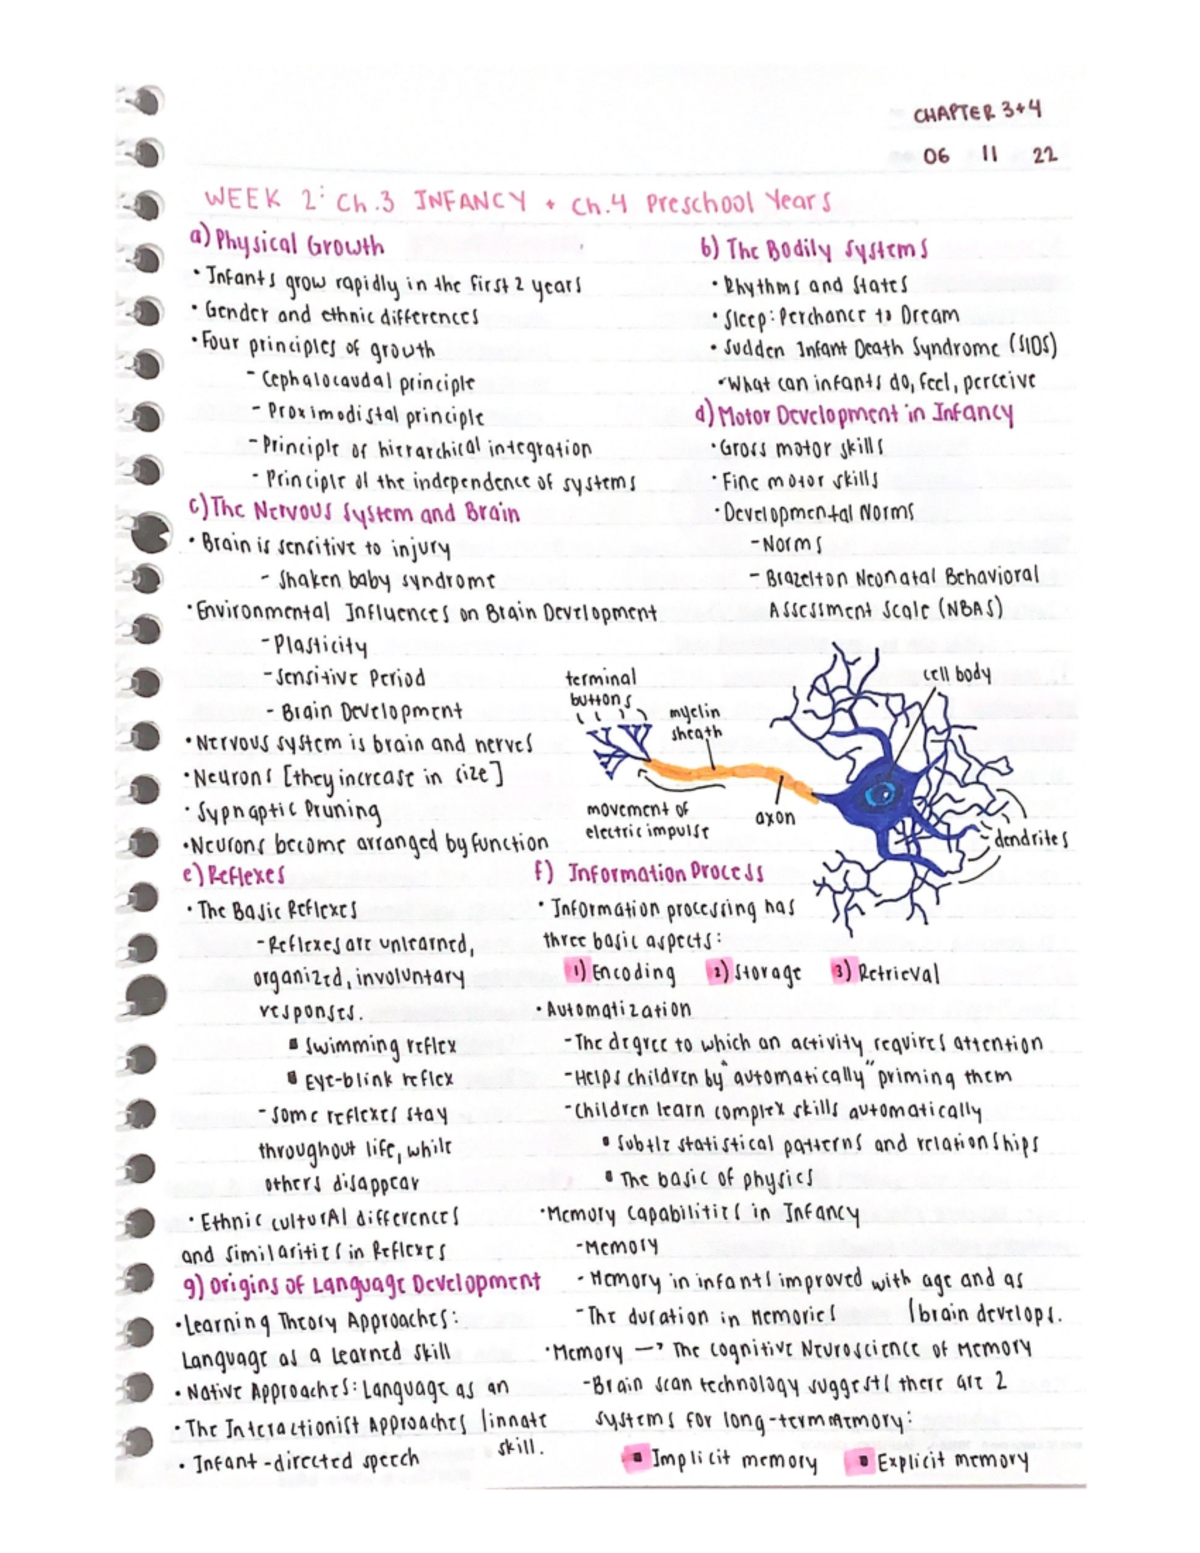 CHAPTER 3+4
06 11 22
WEEK 2: Ch.3 INFANCY + Ch.4 Preschool Years
a) Physical Growth
• Infants grow rapidly in the first 2 years
• Gender and ethnic differences
• Four principles of growth
- Cephalocaudal principle
- Proximodistal principle
- Principle of hierarchical integration
- Principle of the independence of systems
b) The Bodily Systems
• Rhythms and States
• Sleep: Perchance to Dream
• Sudden Infant Death Syndrome (SIDS)
• What can infants do, feel, perceive
c) The Nervous System and Brain
• Brain is sensitive to injury
- Shaken baby syndrome
• Environmental Influences on Brain Development
- Plasticity
- Sensitive Period
- Brain Development
• Nervous system is brain and nerves
• Neurons [they increase in size]
• Sypnaptic Pruning
• Neurons become arranged by function
d) Motor Development in Infancy
• Gross motor skills
• Fine motor skills
• Developmental Norms
- Norms
- Brazelton Neonatal Behavioral
Assessment Scale (NBAS)
terminal
buttons
myelin
sheath
cell body
movement of
electric impulse
axon
dendrites
e) Reflexes
• The Basic Reflexes
- Reflexes are unlearned,
organized, involuntary
responses.
▪ Swimming reflex
▪ Eye-blink reflex
- Some reflexes stay
throughout life, while
others disappear
• Ethnic cultural differences
and similarities in Reflexes
f) Information Process
• Information processing has
three basic aspects:
1) Encoding 2) Storage 3) Retrieval
• Automatization
- The degree to which an activity requires attention
- Helps children by "automatically" priming them
- Children learn complex skills automatically
▪ Subtle statistical patterns and relationships
▪ The basic of physics
• Memory Capabilities in Infancy
- Memory
- Memory in infants improved with age and as
- The duration in Memories | brain develops.
• Memory → The Cognitive Neuroscience of Memory
- Brain scan technology suggests there are 2
systems for long-term memory:
▪ Implicit memory ▪ Explicit memory
g) Origins of Language Development
• Learning Theory Approaches:
Language as a Learned Skill
• Native Approaches: Language as an
• The Interactionist Approaches | innate
skill.
• Infant-directed speech